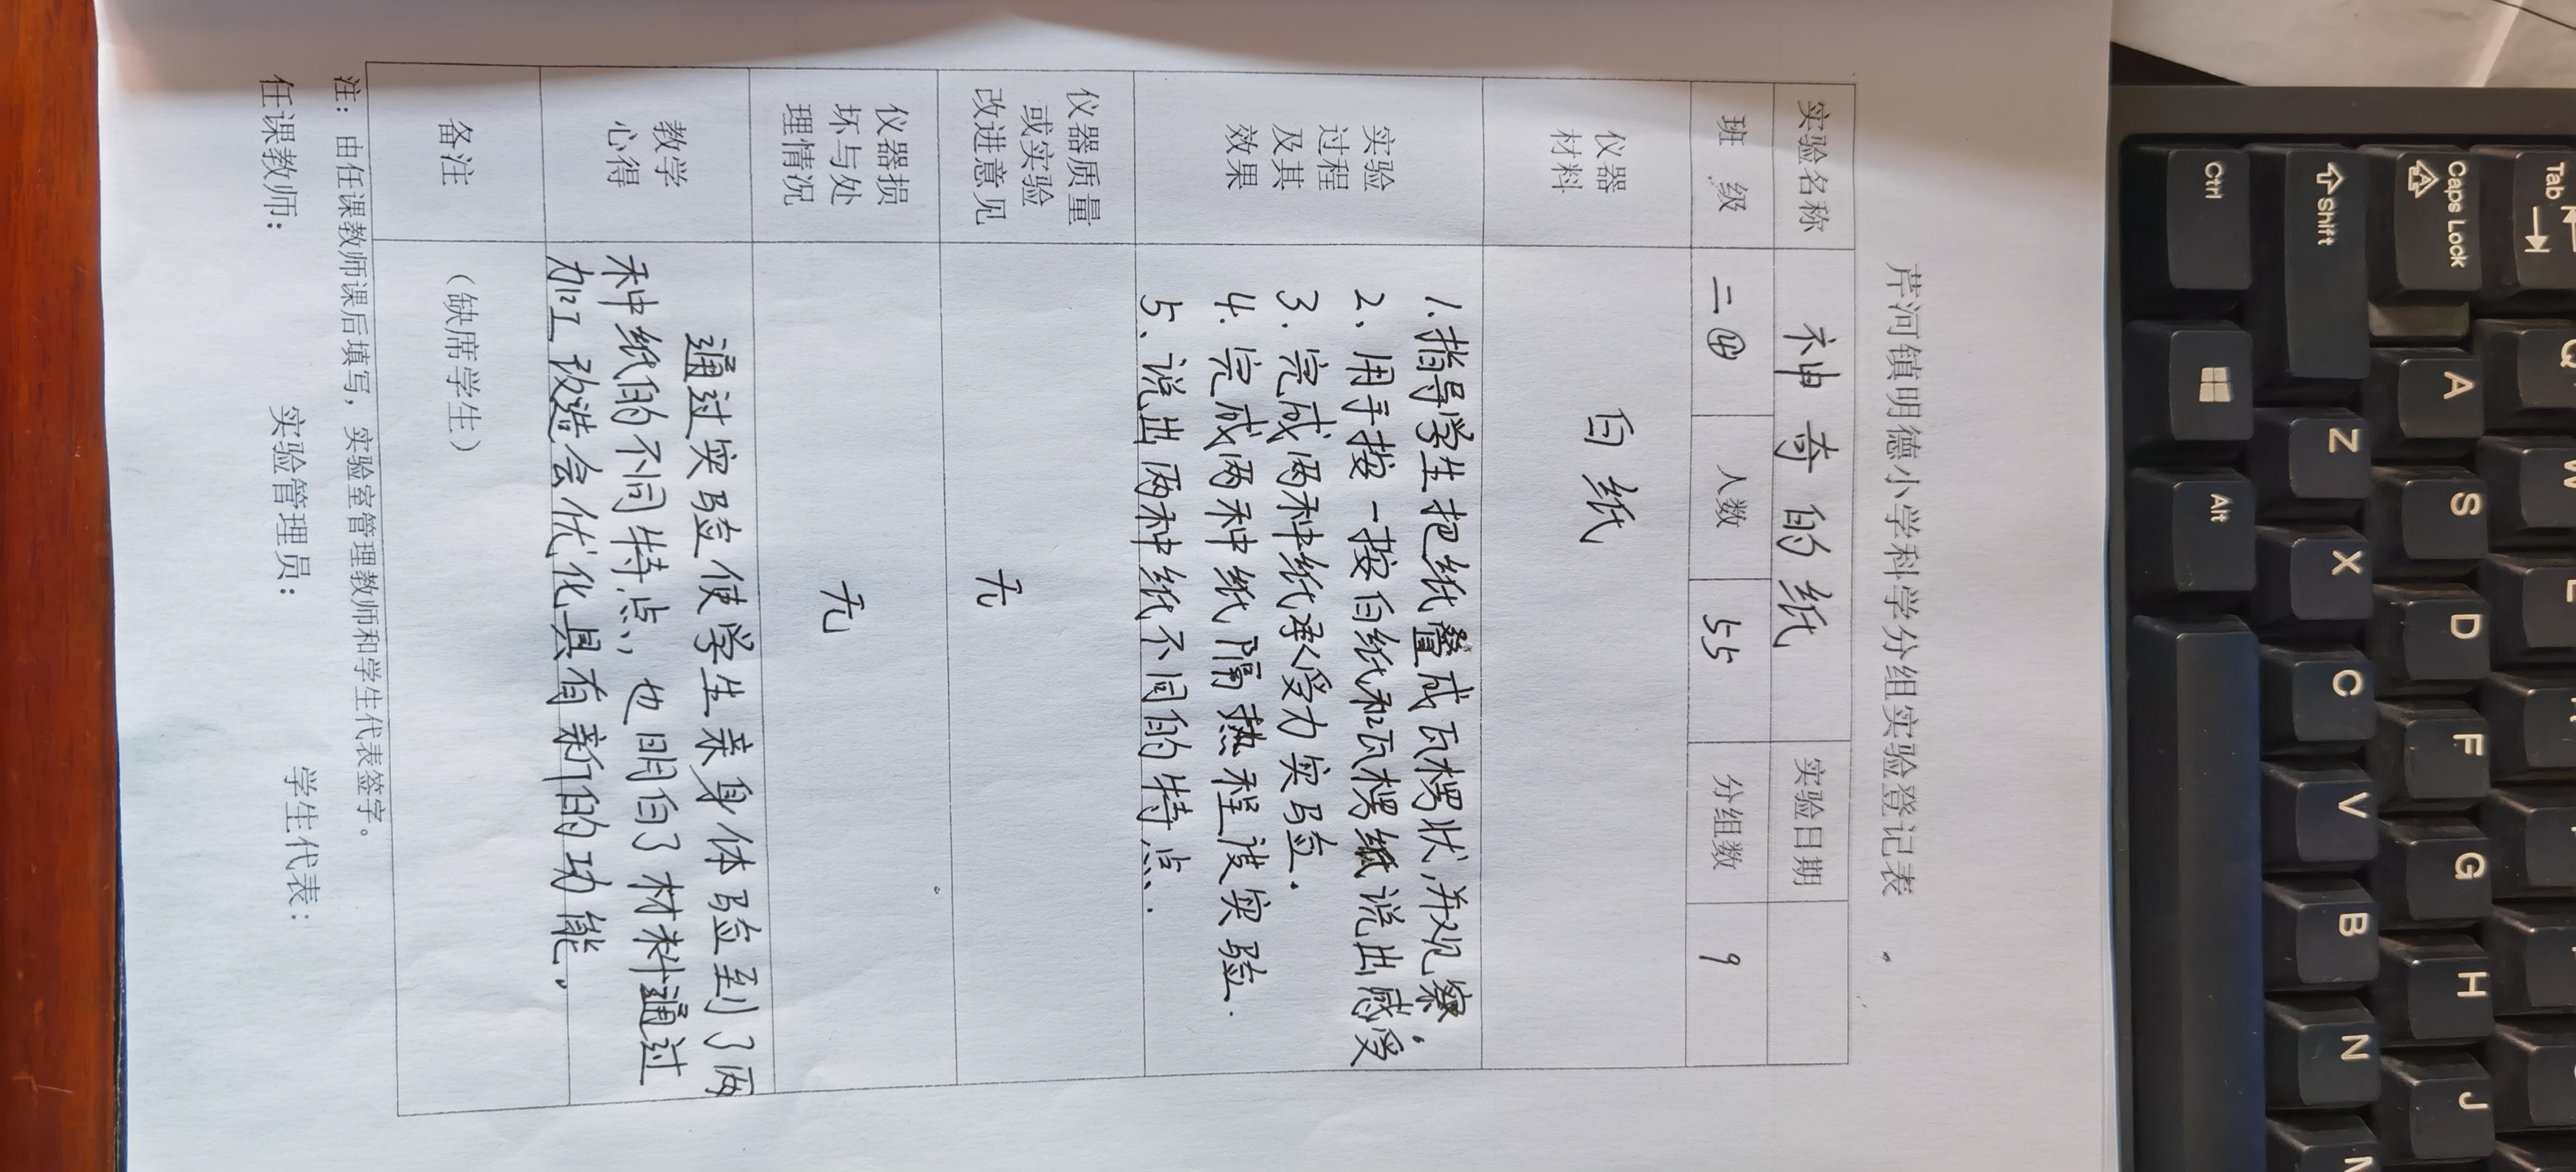 芹河镇明德小学科学分组实验登记表
实验名称 神奇的纸 实验日期
班 级 二④ 人数 55 分组数 9
仪器
材料
白纸
实验
过程
及其
效果
1.指导学生把纸叠成瓦楞状,并观察.
2、用手按一按白纸和瓦楞纸说出感受
3.完成两种纸承受力实验.
4.完成两种纸隔热程度实验.
5、说出两种纸不同的特点.
仪器质量
或实验
改进意见
无
仪器损
坏与处
理情况
无
教学
心得
通过实验使学生亲身体验到了两
种纸的不同特点,也明白了材料通过
加工改造会优化具有新的功能.
备注
（缺席学生）
注：由任课教师课后填写，实验室管理教师和学生代表签字。
任课教师： 实验管理员： 学生代表：
Tab
Caps Lock
Shift
Ctrl
Alt
Q
W
A
S
D
F
G
H
J
Z
X
C
V
B
N